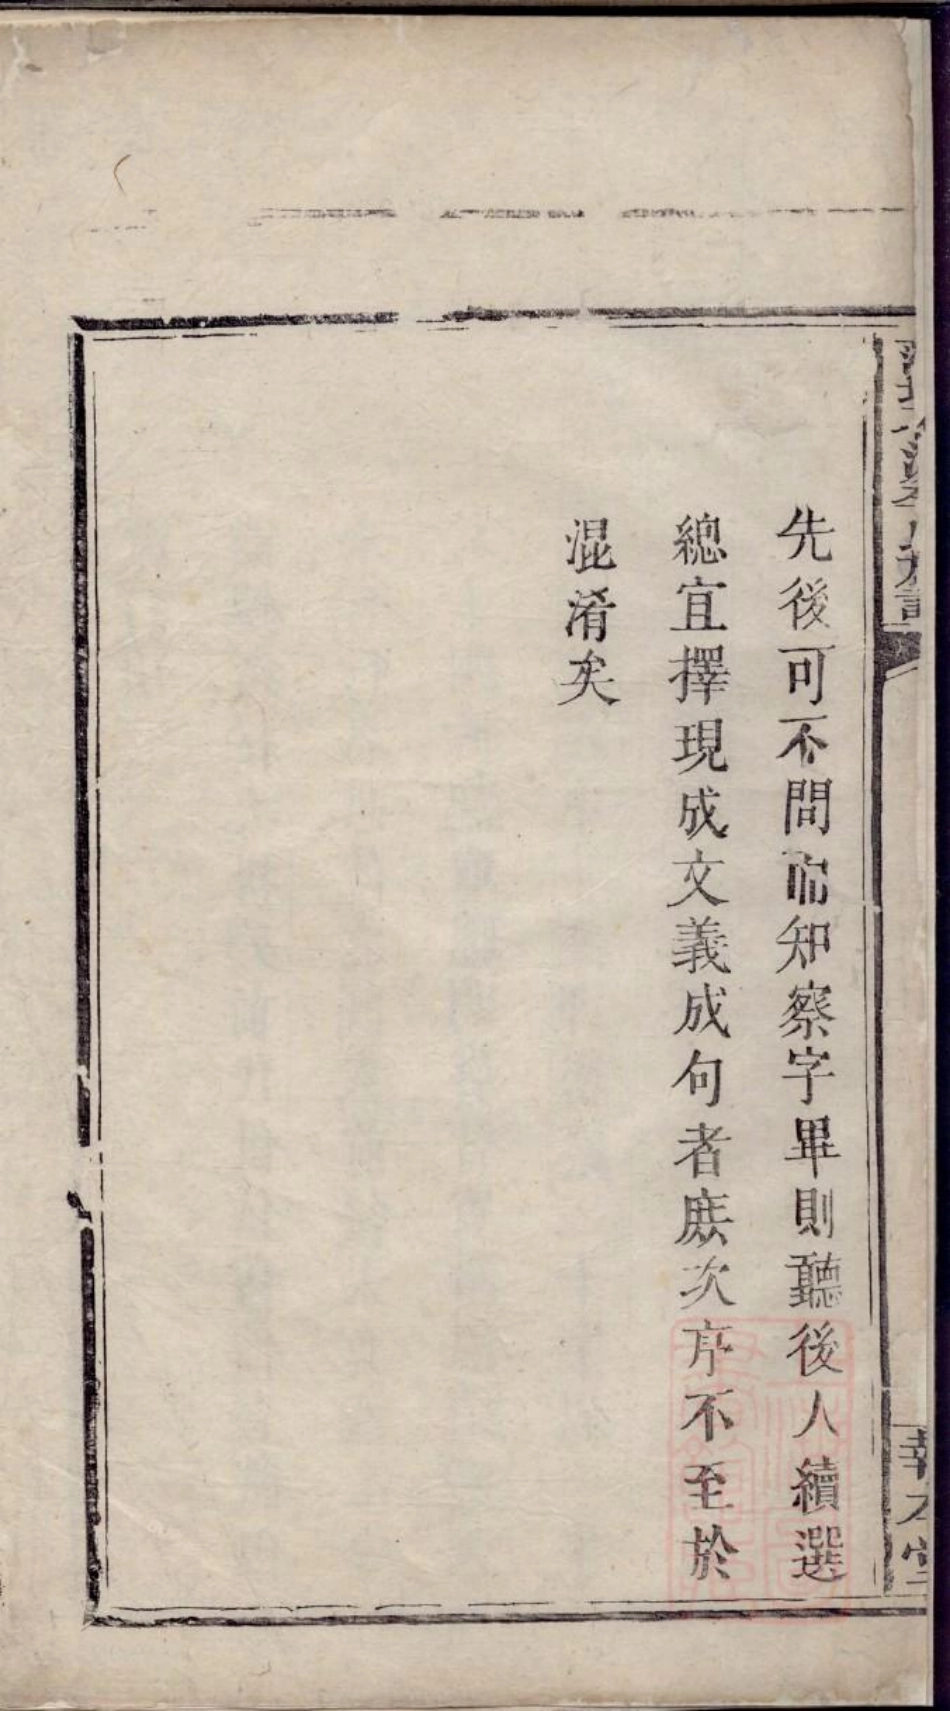 先後可不問而知察字畢則聽後人續選
總宜擇現成文義成句者庶次序不至於
混淆矣
報本堂